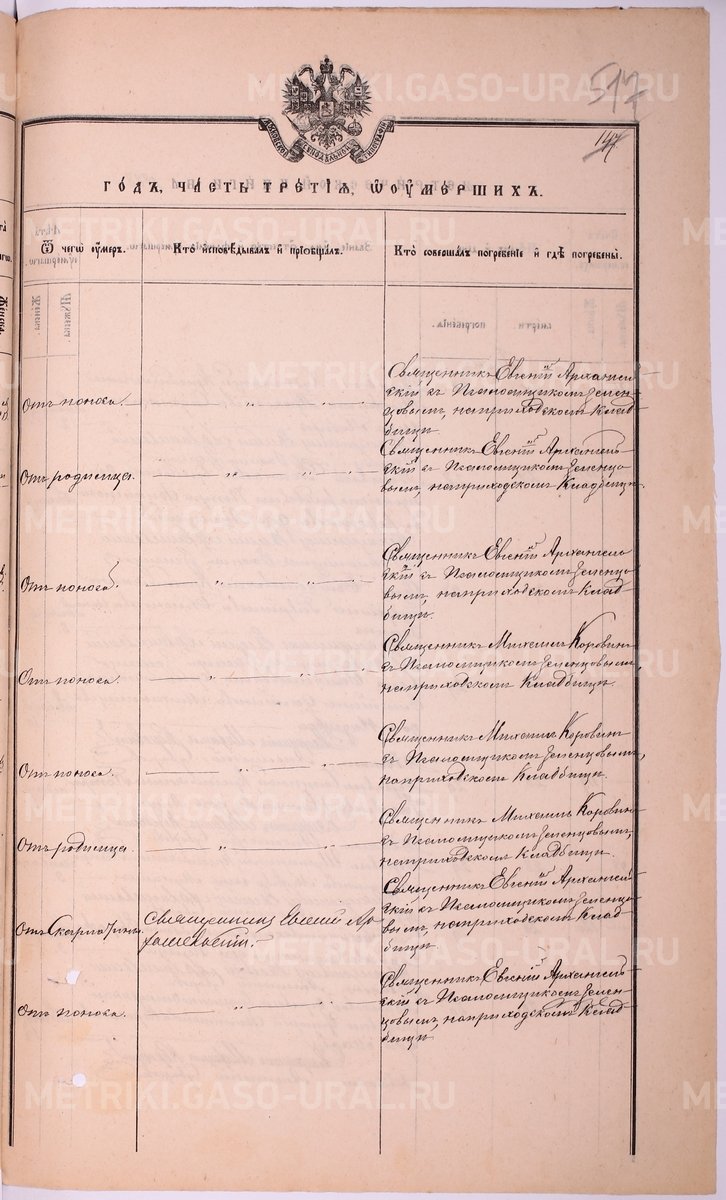 METRIKI.GASO-URAL.RU
517
147
МОСКОВСКОЙ СѴНОДАЛЬНОЙ ТИПОГРАФІИ
ГОДЪ, ЧАСТЬ ТРЕТІЯ, Ѡ ОУМЕРШИХЪ.
Ѿ чегѡ оумеръ.
Кто исповѣдывалъ и пріобщалъ.
Кто совершалъ погребеніе и гдѣ погребены.
Отъ поноса.
Священникъ Евгеній Архангель
скій съ Псаломщикомъ Зелен
цовымъ, на приходскомъ Клад
бищи
Отъ родимца.
Священникъ Евгеній Архангель
скій съ Псаломщикомъ Зеленцо
вымъ, на приходскомъ Кладбищи
Отъ поноса.
Священникъ Евгеній Архангель
скій съ Псаломщикомъ Зеленцо
вымъ, на приходскомъ Клад
бищи.
Отъ поноса.
Священникъ Михаилъ Коровинъ
съ Псаломщикомъ Зеленцовымъ,
на приходскомъ Кладбищи.
Отъ поноса.
Священникъ Михаилъ Коровинъ
съ Псаломщикомъ Зеленцовымъ,
на приходскомъ Кладбищи.
Отъ родимца
Священникъ Михаилъ Коровинъ
съ Псаломщикомъ Зеленцовымъ,
на приходскомъ Кладбищи.
Отъ Скарлатины
Священникъ Евгеній Ар
хангельскій.
Священникъ Евгеній Архангель
скій съ Псаломщикомъ Зеленцо
вымъ, на приходскомъ Клад
бищи
Отъ поноса.
Священникъ Евгеній Архангель
скій съ Псаломщикомъ Зелен
цовымъ, на приходскомъ Клад
бищи